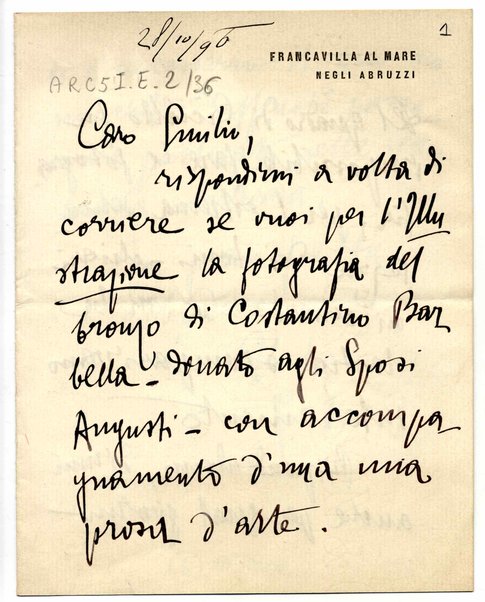 28/10/96
1
FRANCAVILLA AL MARE
NEGLI ABRUZZI
ARC51.E.2/36
Caro Emilio,
rispondimi a volta di
corriere se vuoi per l'Illu
strazione la fotografia del
bronzo di Costantino Bar
bella – donato agli Sposi
Augusti – con accompa
gnamento d'una mia
prosa d'arte.